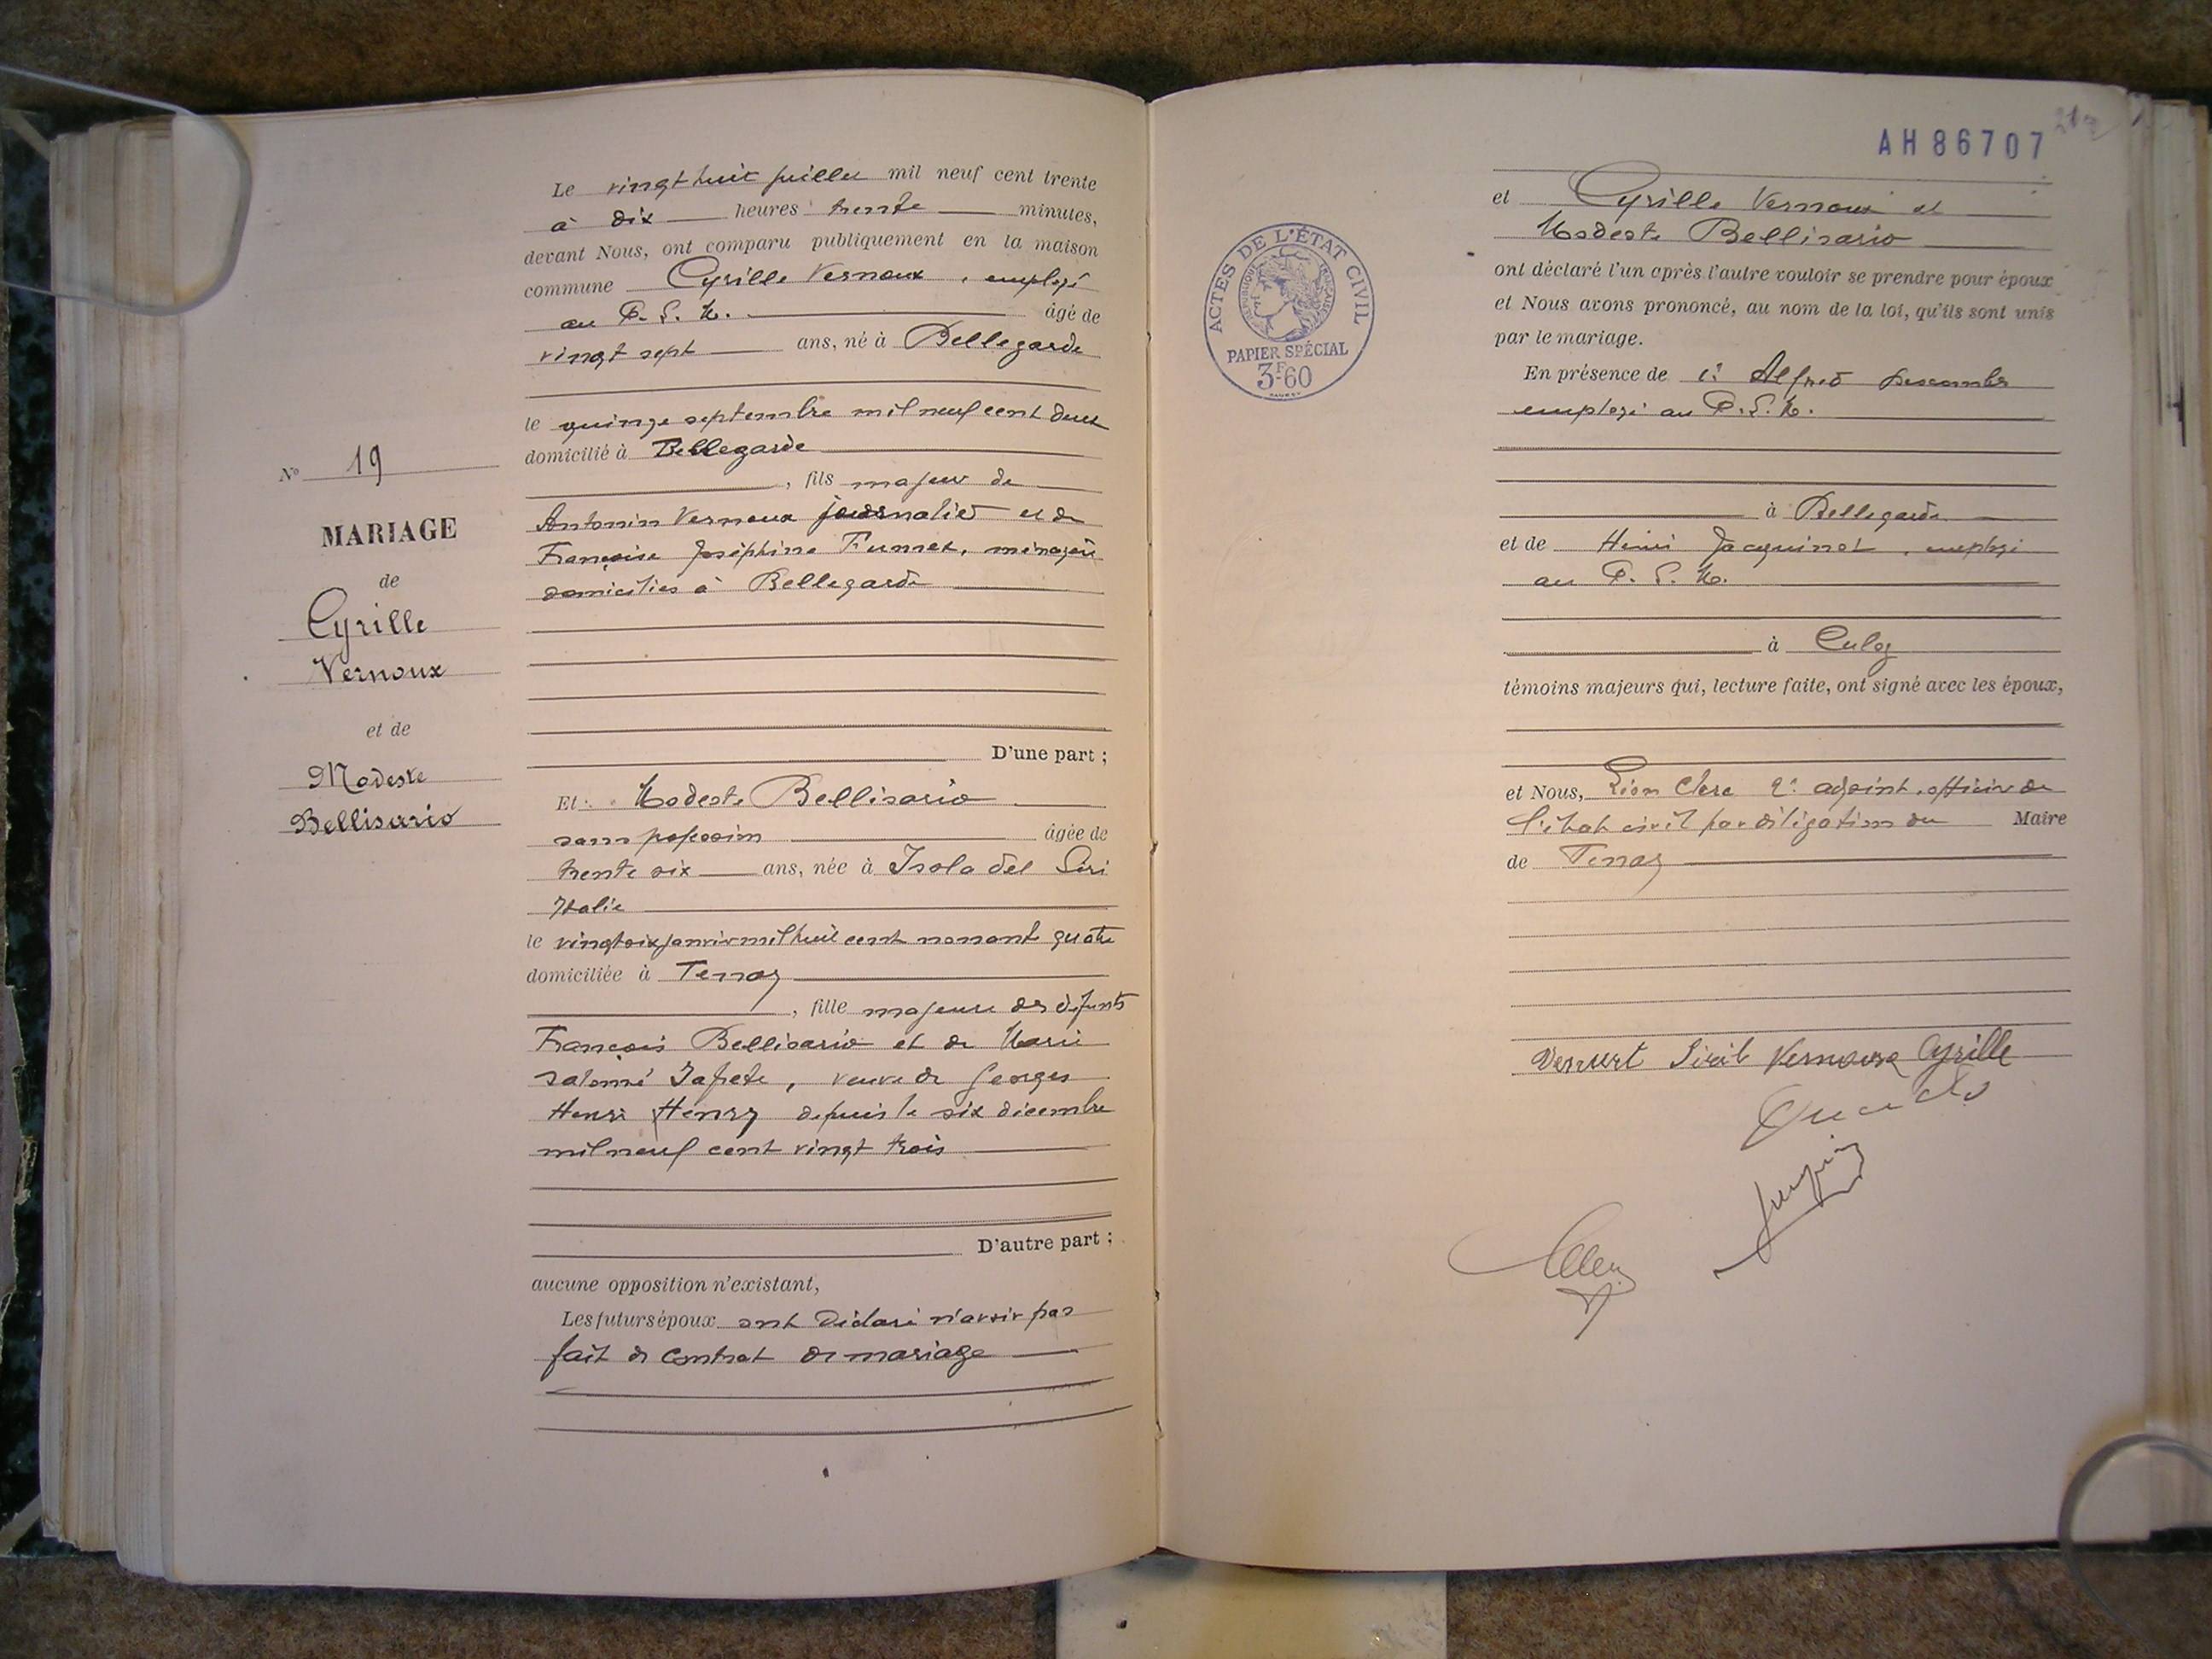 Le vingt huit juillet mil neuf cent trente
à dix heures trente minutes,
devant Nous, ont comparu publiquement en la maison
commune Cyrille Vernoux, employé
au P. L. M. âgé de
vingt sept ans, né à Bellegarde
le quinze septembre mil neuf cent deux
domicilié à Bellegarde
, fils majeur de
Antonin Vernoux journalier et de
Françoise Joséphine Fumex, ménagère
domiciliés à Bellegarde
D'une part ;
N° 19
MARIAGE
de
Cyrille
Vernoux
et de
Modeste
Bellisario
Et Modeste Bellisario
sans profession âgée de
trente six ans, née à Isola del Liri
Italie
le vingt six janvier mil huit cent nonante quatre
domiciliée à Tenay
, fille majeure des défunts
François Bellisario et de Marie
Salomé, veuve de Georges
Henri Henry depuis le six décembre
mil neuf cent vingt trois
D'autre part ;
aucune opposition n'existant,
Les futurs époux ont déclaré n'avoir pas
fait de contrat de mariage
AH86707
ACTES DE L'ÉTAT CIVIL
RÉPUBLIQUE FRANÇAISE
PAPIER SPÉCIAL
3F60
et Cyrille Vernoux et
Modeste Bellisario
ont déclaré l'un après l'autre vouloir se prendre pour époux
et Nous avons prononcé, au nom de la loi, qu'ils sont unis
par le mariage.
En présence de 1° Alfred Descombes
employé au P. L. M.
à Bellegarde
et de Henri Jacquinot, employé
au P. L. M.
à Culoz
témoins majeurs qui, lecture faite, ont signé avec les époux,
et Nous, Léon Clerc 2e adjoint, officier de
l'état civil par délégation du Maire
de Tenay
Vernoux Cyrille